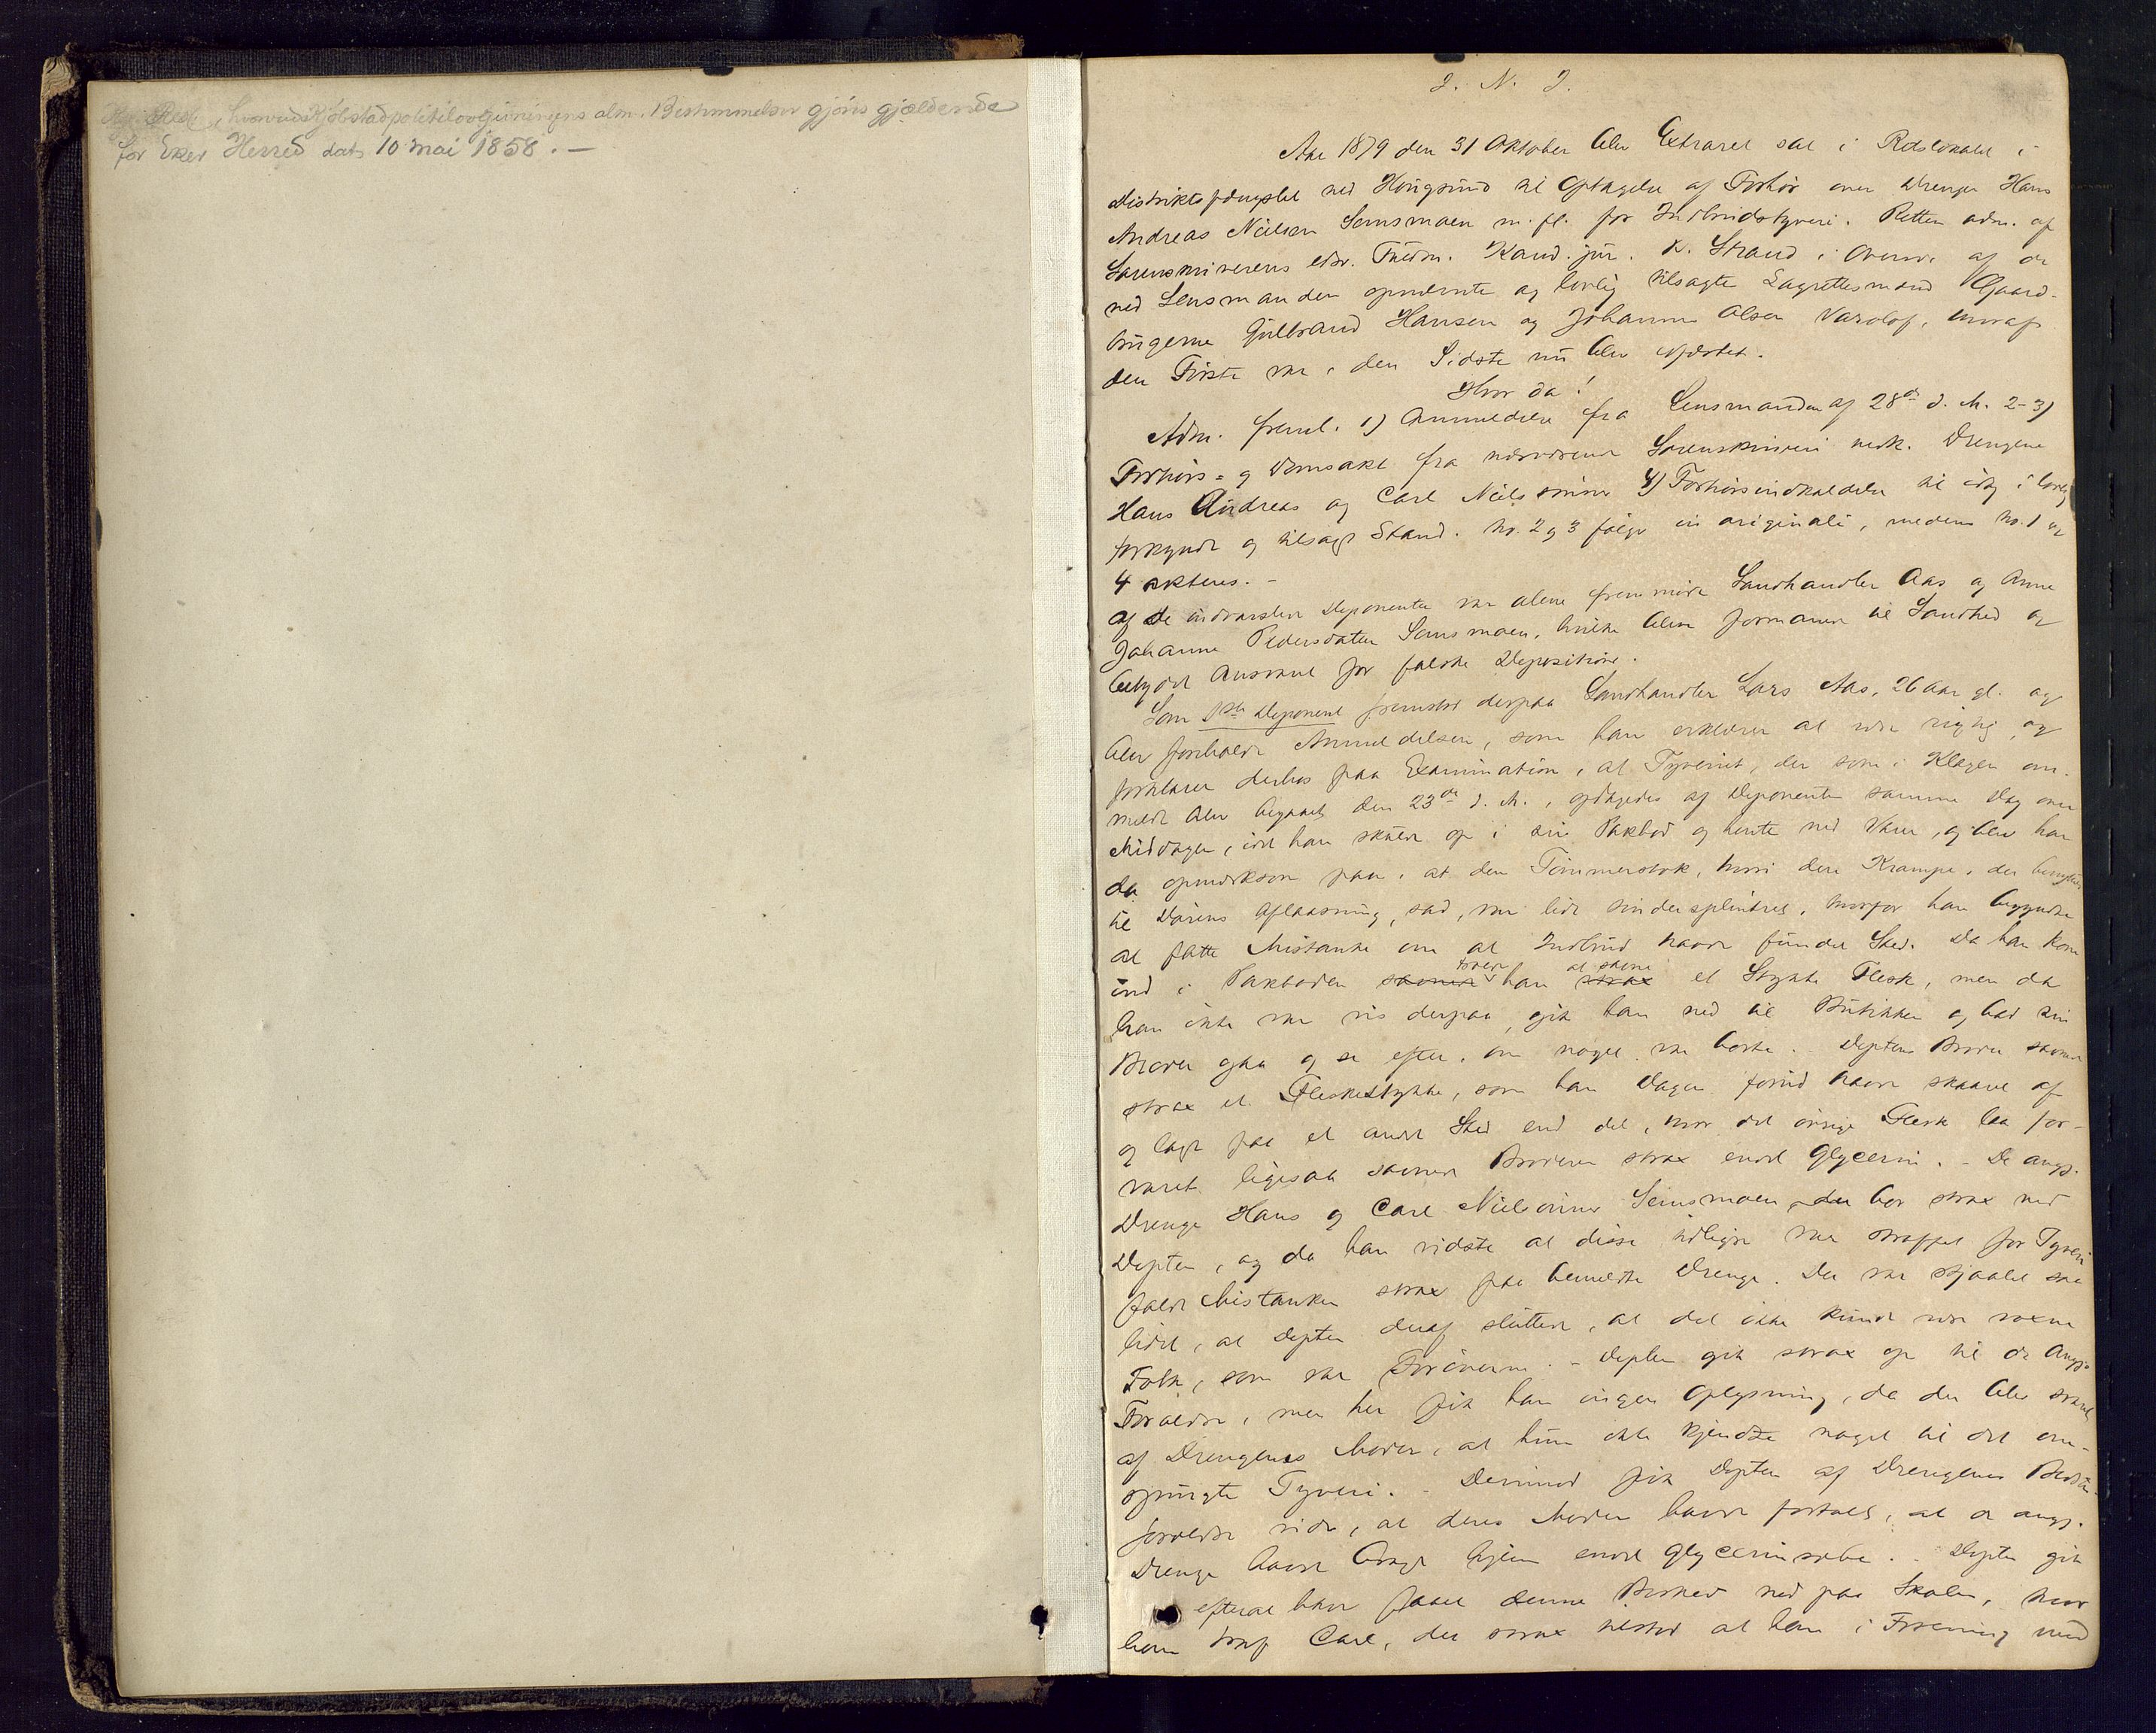 Kgl. Resl., hvorved Kjøbstadpolitilovgivningens alm. Bestemmelser gjøres gjældende
for Eker Herred dat. 10 mai 1858. —
J. N. J.
Aar 1879 den 31 Oktober blev Extraret sat i Retslokalet i
Distriktsfængslet ved Hougsund til Optagelse af Forhør over Drengen Hans
Andreas Nielsen Semsmoen m. fl. for Indbrudstyveri. Retten adm. af
Sorenskriverens edsv. Fuldm. Kand. jur. K. Strand i Overvær af de
ved Lensmanden opnævnte og lovlig tilsagte Lagrettesmænd Gaard-
brugerne Gulbrand Hansen og Johannes Olsen Varlo, hvoraf
den Første var, den Sidste nu blev edfæstet.
Hvor da!
Adm. freml. 1) Anmeldelse fra Lensmanden af 28de d. M. 2-3)
Forhørs- og Domsakt fra nærværende Sorenskriveri vedk. Drengene
Hans Andreas og Carl Nielssønner 4) Forhørsindkaldelse til idag i lovlig
forkyndt og tilsagt Stand. No. 2 og 3 følge in originali, medens No. 1 og
4 akteres. -
Af de indvarslede Deponenter var alene fremmødt Landhandler Aas og Anne
Johanne Pedersdatter Semsmoen, hvilke bleve formanede til Sandhed og
betydet Ansvaret for falske Depositioner.
Som 1ste Deponent fremstod derpaa Landhandler Lars Aas, 26 Aar gl. og
blev foreholdt Anmeldelsen, som han erklærer at være rigtig, og
forklarer derhos paa Examination, at Tyveriet, der som i Klagen om-
meldt blev begaaet den 23de d. M., opdagedes af Deponenten samme Dag over
Middagen, idet han skulde op i sin Pakbod og hente ned Varer, og blev han
da opmærksom paa, at den Tømmerstok, hvori den Krampe, der benyttes
til Dørens Aflaasning, sad, var lidt sindersplintret, hvorfor han begyndte
at fatte Mistanke om at Indbrud havde fundet Sted. Da han kom
ind i Pakboden savnede troede han strax at savne et Stykke Flesk, men da
han ikke var vis derpaa, gik han ned til Butikken og bad sin
Broder gaa og se efter, om noget var borte. Deptens Broder savnede
strax et Fleskestykke, som han Dagen forud havde skaaret af
og lagt paa et andet Sted end det, hvor det øvrige Flesk laa for-
varet ligesaa savnede Broderen strax endel Glycerin. - De angj.
Drenge Hans og Carl Nielsønner Semsmoen bor strax ved
Depten, og da han vidste at disse tidligere var straffet for Tyveri
faldt Mistanken strax paa bemeldte Drenge. Der var stjaalet saa
lidet, at Depten deraf sluttede, at det ikke kunde være voxne
Folk, som var Forøverne. - Depten gik strax op til de Angj.
Forældre, men her fik han ingen Oplysning, da der blev svaret
af Drengenes Moder, at hun ikke kjendte noget til det om-
spurgte Tyveri. - Derimod fik Depten af Drengenes Bedste-
forældre vide, at deres Moder havde fortalt, at de angj.
Drenge havde bragt hjem endel Glycerinsæbe. - Depten gik
efterat have faaet denne Besked ned paa Skolen, hvor
han traf Carl, der strax tilstod at han i Forening med